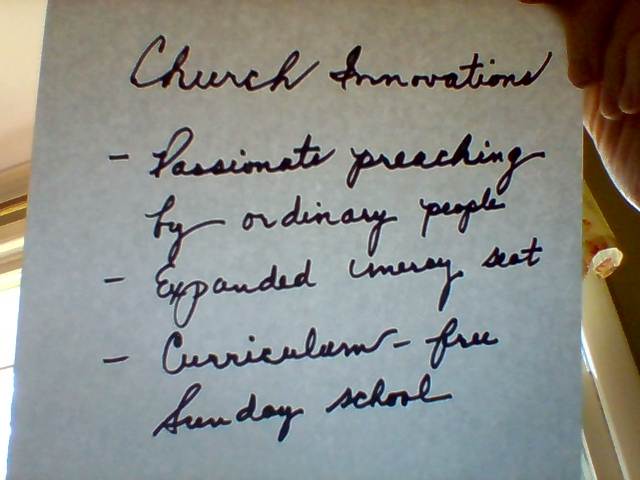 Church Innovations
- Passionate preaching
by ordinary people
- Expanded mercy seat
- Curriculum-free
Sunday school